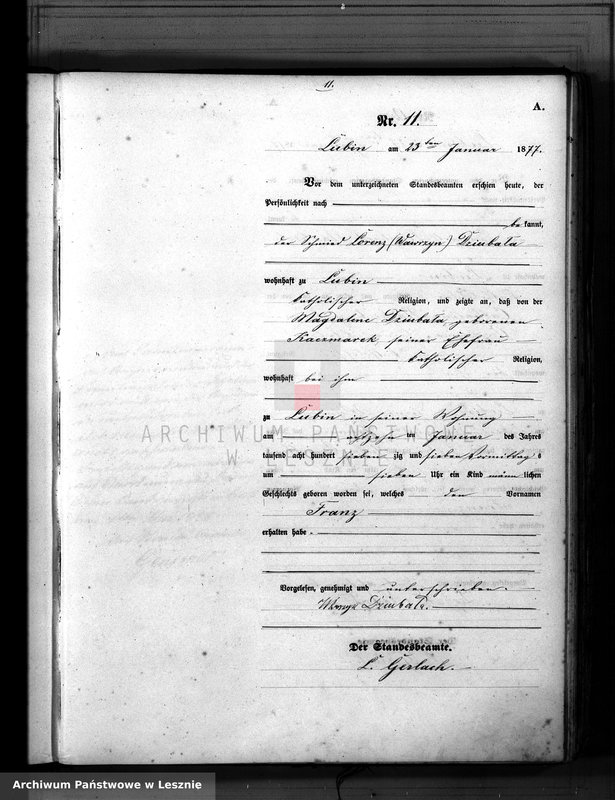 11.
A.
Nr. 11.
Lubin am 23ten Januar 1877.
Vor dem unterzeichneten Standesbeamten erschien heute, der
Persönlichkeit nach
bekannt,
der Schmied Lorenz (Wawrzyn) Dziubata
wohnhaft zu Lubin
katholischer Religion, und zeigte an, daß von der
Magdalene Dziubata, geborenen
Kaczmarek seiner Ehefrau
katholischer Religion,
wohnhaft bei ihm
zu Lubin in seiner Wohnung
am achtzehnten Januar des Jahres
tausend acht hundert siebenzig und sieben Vormittags
um sieben Uhr ein Kind männlichen
Geschlechts geboren worden sei, welches den Vornamen
Franz
erhalten habe.
Vorgelesen, genehmigt und unterschrieben.
Dziubata.
Der Standesbeamte.
L. Gerlach.
ARCHIWUM PAŃSTWOWE
W LESZNIE
Archiwum Państwowe w Lesznie